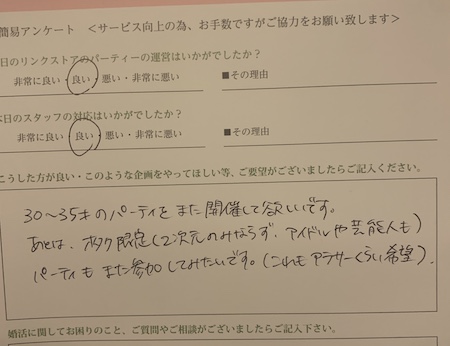 簡易アンケート ＜サービス向上の為、お手数ですがご協力をお願い致します＞
日のリンクストアのパーティーの運営はいかがでしたか？
非常に良い・良い・悪い・非常に悪い ■その理由
日のスタッフの対応はいかがでしたか？
非常に良い・良い・悪い・非常に悪い ■その理由
こうした方が良い・このような企画をやってほしい等、ご要望がございましたらご記入ください。
30～35才のパーティをまた開催して欲しいです。
あとは、オタク限定（2次元のみならず、アイドルや芸能人も）
パーティもまた参加してみたいです。（これもアラサーくらい希望）．
婚活に関してお困りのこと、ご質問やご相談がございましたらご記入下さい。